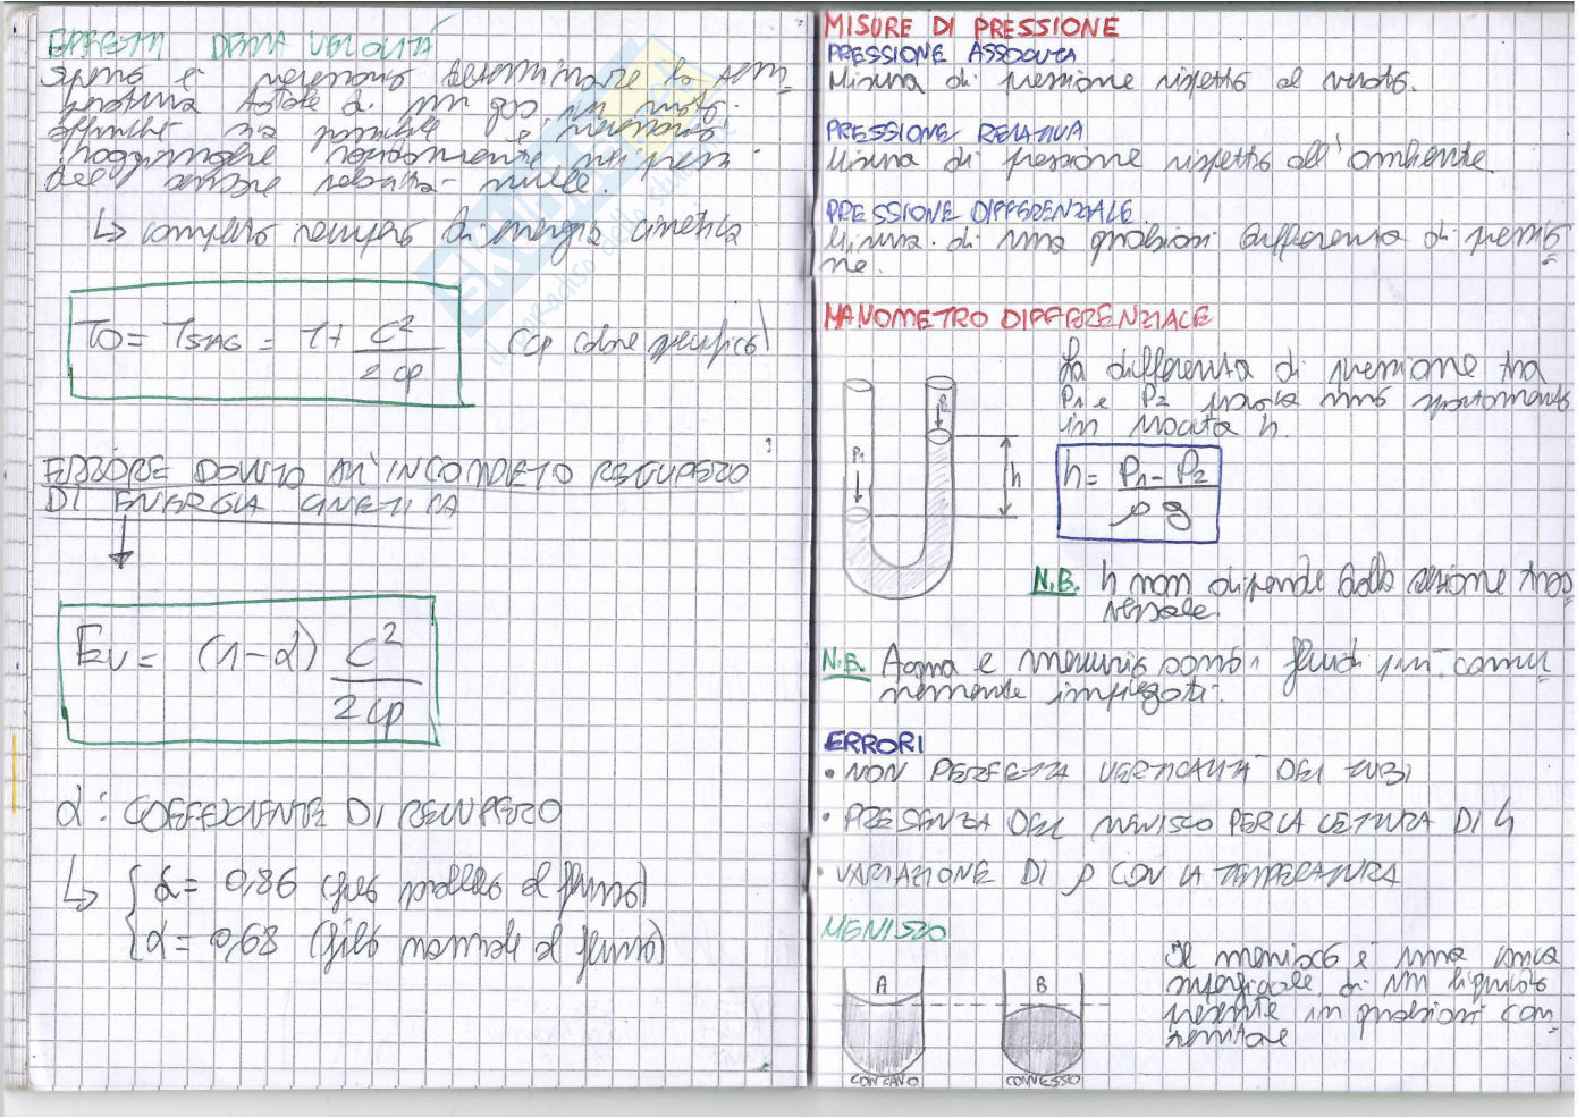 EFFETTI DELLA VELOCITÀ
Spesso è necessario determinare la tem-
peratura totale di un gas in moto.
affinché sia possibile è necessario
raggiungere nei pressi
del sensore velocità nulle.
↳ completo recupero di energia cinetica
T0 = TSTAG = T + C² / 2 cp (cp calore specifico)
ERRORE DOVUTO ALL'INCOMPLETO RECUPERO
DI ENERGIA CINETICA
Ev = (1-α) C² / 2 cp
α : COEFFICIENTE DI RECUPERO
↳ { α = 0,86 (filo parallelo al flusso)
α = 0,68 (filo normale al flusso)
MISURE DI PRESSIONE
PRESSIONE ASSOLUTA
Misura di pressione rispetto al vuoto.
PRESSIONE RELATIVA
Misura di pressione rispetto all'ambiente.
PRESSIONE DIFFERENZIALE
Misura di una qualsiasi differenza di pressio-
ne.
MANOMETRO DIFFERENZIALE
La differenza di pressione tra
P1 e P2 provoca uno spostamento
in uscita h.
P1
P2
h
h = P1 - P2 / ρ g
N.B. h non dipende dalla sezione tras-
versale.
N.B. Acqua e mercurio sono i fluidi più comu-
nemente impiegati.
ERRORI
• NON PERFETTA VERTICALITÀ DEI TUBI
• PRESENZA DEL MENISCO PER LA LETTURA DI h
• VARIAZIONE DI ρ CON LA TEMPERATURA
MENISCO
A
B
CONCAVO
CONVESSO
Il menisco è una
superficiale di un liquido
presente in qualsiasi con-
tenitore